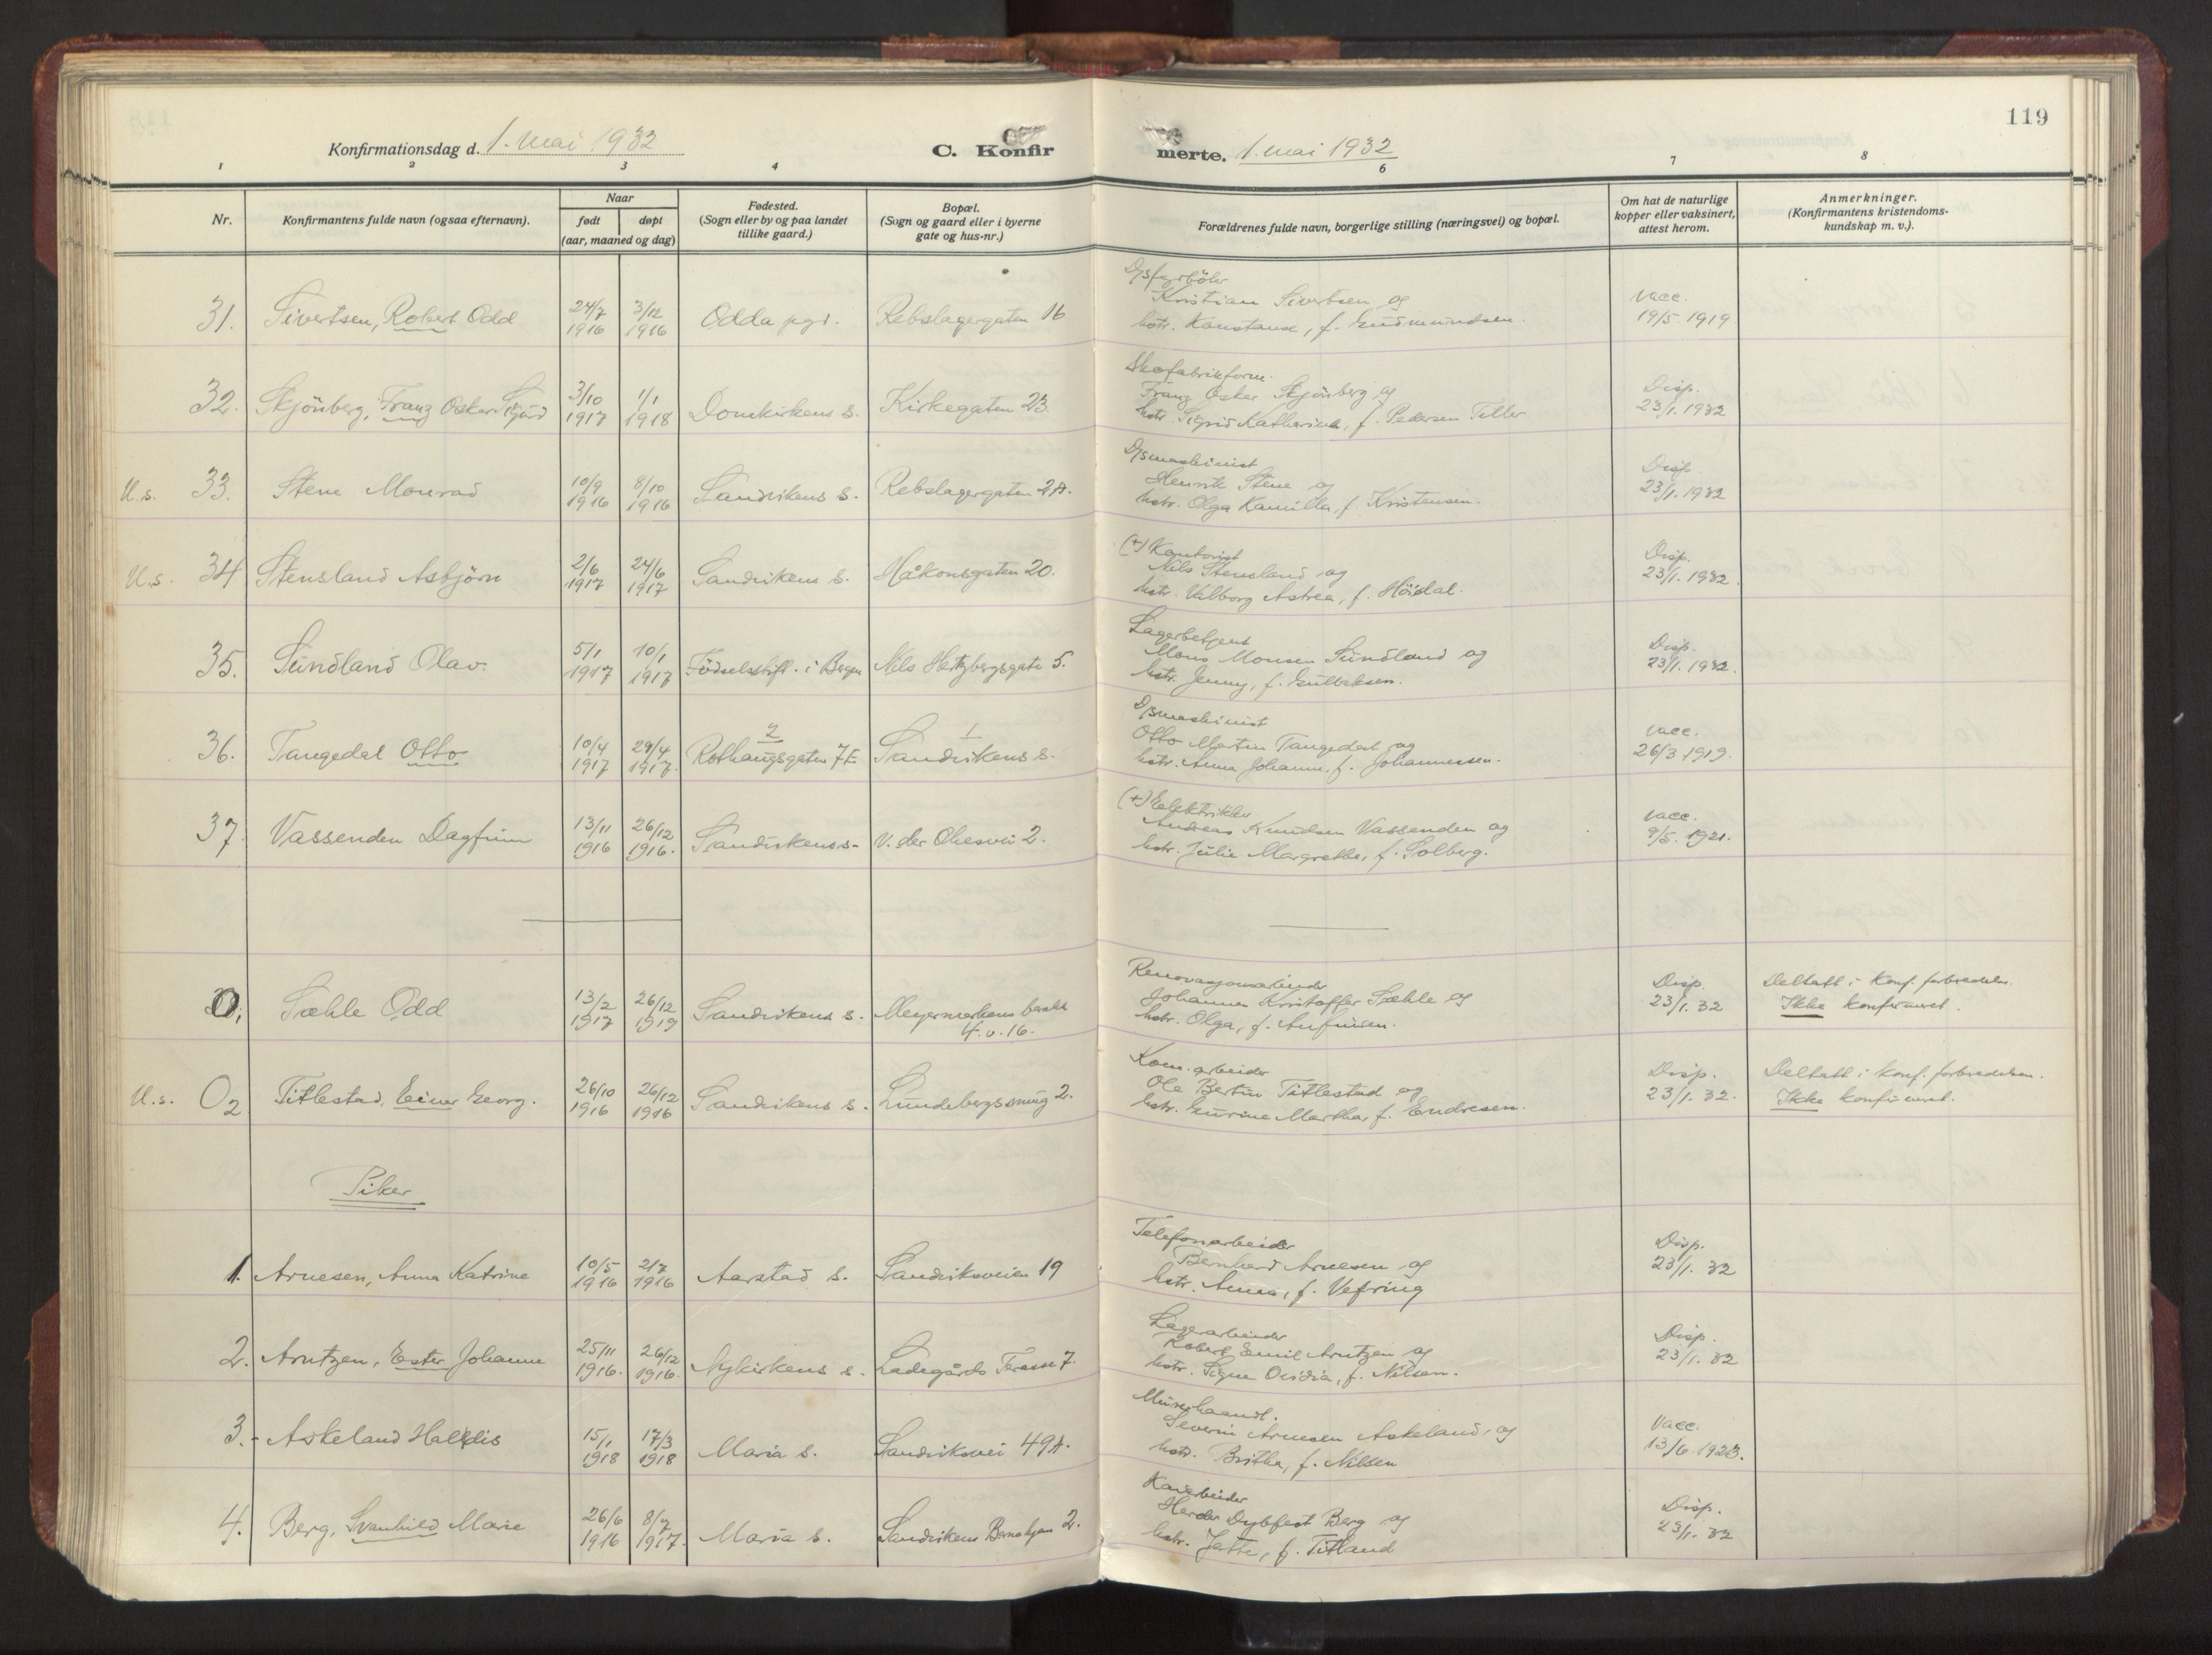 119
Konfirmationsdag d. 1. mai 1932
C. Konfir
merte. 1. mai 1932
1 2 3 4 6 7 8
Nr.
Konfirmantens fulde navn (ogsaa efternavn).
Naar
født døpt
(aar, maaned og dag)
Fødested.
(Sogn eller by og paa landet
tillike gaard.)
Bopæl.
(Sogn og gaard eller i byerne
gate og hus-nr.)
Forældrenes fulde navn, borgerlige stilling (næringsvei) og bopæl.
Om hat de naturlige
kopper eller vaksinert,
attest herom.
Anmerkninger.
(Konfirmantens kristendoms-
kundskap m. v.).
31. Sivertsen, Robert Odd 24/7 1916 3/12 1916 Odda pgd. Rebslagergaten 16
D/sfyrböter
Kristian Sivertsen og
hstr. Konstanse, f. Gudmundsen.
vacc.
19/5 1919
32. Skjönberg, Franz Oskar Sigurd 3/10 1917 1/1 1918 Domkirkens s. Kirkegaten 23
Skofabrikform.
Franz Oskar Skjönberg og
hstr. Sigrid Katharina, f. Pedersen Tiller
Disp.
23/1. 1932
U.s. 33. Stene Monrad 10/9 1916 8/10 1916 Sandvikens s. Rebslagergaten 2A.
D/smaskinist
Henrik Stene og
hstr. Olga Kamilla, f. Kristensen.
Disp.
23/1. 1932
U.s. 34 Stensland Asbjörn 2/6 1917 24/6 1917 Sandvikens s. Håkonsgaten 20.
(+) Kontorist
Nils Stensland og
hstr. Valborg Astrea, f. Höidal.
Disp.
23/1. 1932.
35. Sundland Olav. 5/1 1917 10/1 1917 Födselsstift. i Bergen Nils Hertzbergsgate 5.
Lagerbetjent
Mons Monsen Sundland og
hstr. Jenny, f. Gullaksen.
Disp.
23/1. 1932.
36. Tangedal Otto 10/4 1917 29/4 1917. 2 Rothaugsgaten 7E 1 Sandvikens s.
D/smaskinist
Otto Martin Tangedal og
hstr. Anna Johanne, f. Johannessen.
vacc.
26/3 1919.
37. Vassenden Dagfinn 13/11 1916 26/12 1916. Sandvikens s. V. der Ohesvei 2.
(+) Elektriker
Andreas Knudsen Vassenden og
hstr. Julie Margrethe, f. Solberg.
vacc.
9/5. 1921.
0, Sæhle Odd 13/2 1917 26/12 1919 Sandvikens s. Meyermarkens barakk
4. v. 16.
Renovasjonsarbeider
Johannes Kristoffer Sæhle og
hstr. Olga, f. Anfinsen.
Disp.
23/1. 32
Deltatt i Konf. forberedelsen.
Ikke konfirmert.
U.s. 02 Titlestad, Einar Georg. 26/10 1916 26/12 1916 Sandvikens s. Lundebergsmug 2.
Kom. arbeider
Ole Bertin Titlestad og
hstr. Gurine Martha, f. Endresen.
Disp.
23/1. 32.
Deltatt i konf. forberedelsen.
Ikke konfirmert.
Piker
1. Arnesen, Anna Katrine 10/5 1916 2/7 1916 Aarstad s. Sandviksveien 19
Telefonarbeider
Bernhard Arnesen og
hstr. Anna, f. Vefring
Disp.
23/1. 32
2. Arntzen, Ester Johanne 25/11 1916. 26/12 1916. Nykirkens s. Ladegårds Terasse 7.
Lagerarbeider
Robert Emil Arntzen og
hstr. Signe Ovidia, f. Nilsen.
Disp.
23/1. 32
3. Askeland Halldis 15/1 1918 17/3 1918 Maria s. Sandviksvei 49A.
Murerhaandl.
Severin Arnesen Askeland, og
hstr. Britha, f. Nilsen
Vacc.
13/6. 1923.
4. Berg, Svanhild Marie 26/6 1916 8/7 1917. Maria s. Sandvikens Barnehjem 2.
Herder Dybfest Berg og
hstr. Jette, f. Titland
Disp.
23/1. 32